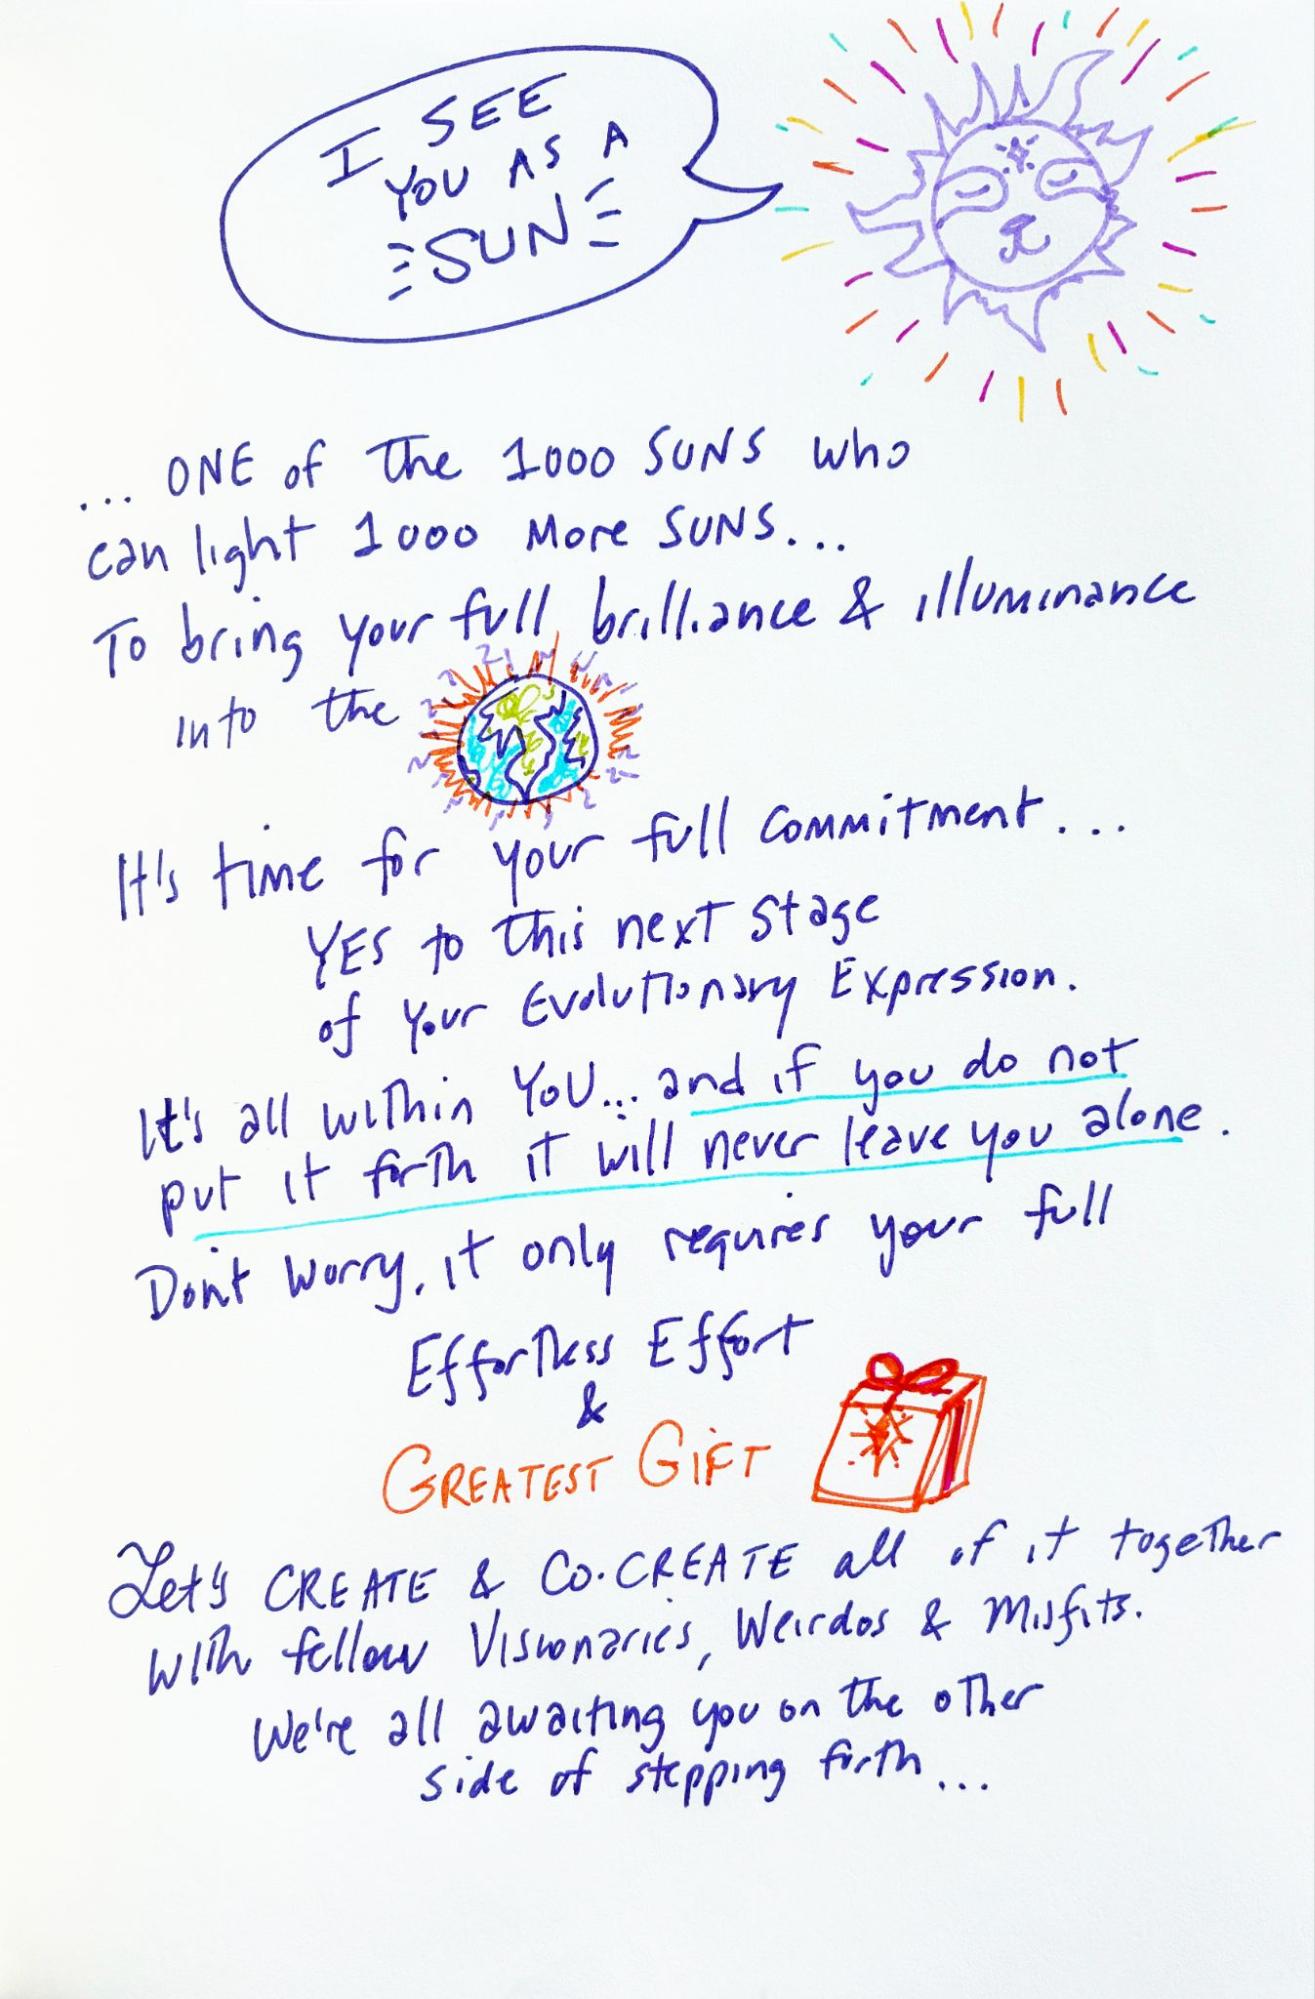 I SEE
YOU AS A
SUN
... ONE of the 1000 SUNS who
can light 1000 More SUNS...
To bring your full brilliance & illuminance
into the
It's time for your full commitment...
YES to this next stage
of your Evolutionary Expression.
It's all within YOU... and if you do not
put it forth it will never leave you alone.
Don't worry, it only requires your full
Effortless Effort
&
GREATEST GIFT
Let's CREATE & CO-CREATE all of it together
with fellow Visionaries, Weirdos & Misfits.
We're all awaiting you on the other
side of stepping forth...